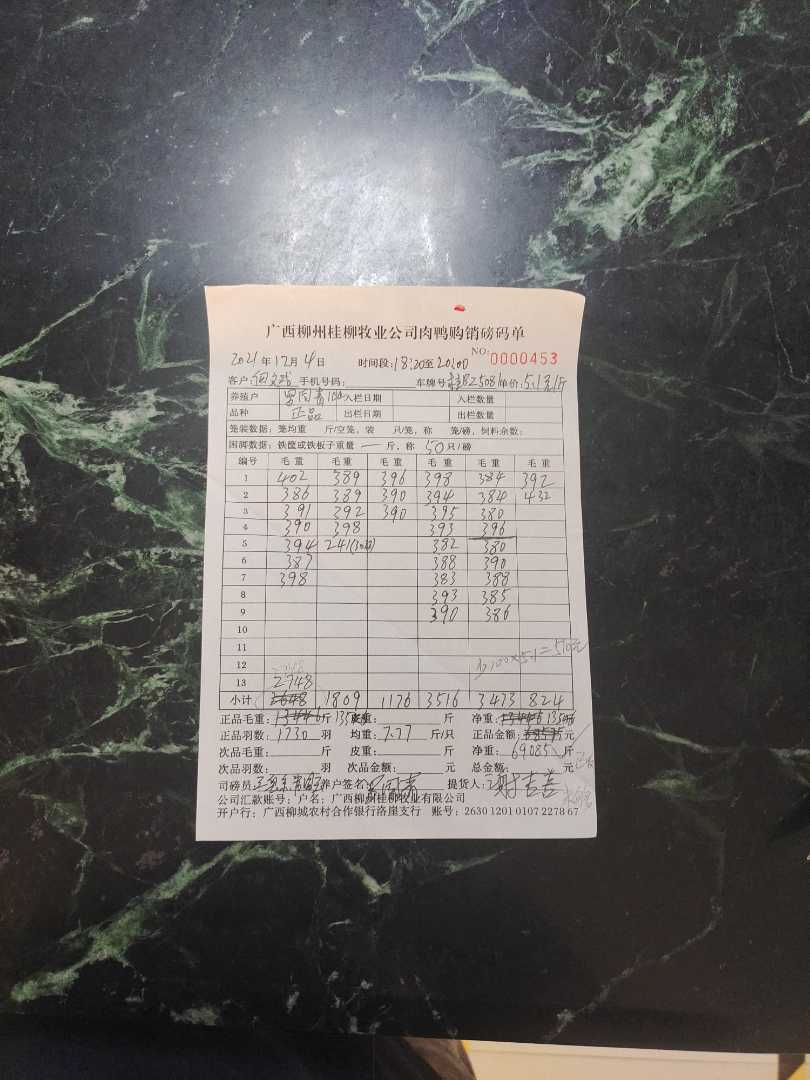 广西柳州桂柳牧业公司肉鸭购销磅码单
NO: 0000453
2021年12月4日 时间段: 18:20至20:00
客户: 手机号码: 车牌号 82508 单价: 5.1元/斤
养殖户 入栏日期 入栏数量
品种 正品 出栏日期 出栏数量
笼装数据: 笼均重 斤/空笼,装 只/笼,称 笼/磅,饲料余数:
困脚数据: 铁筐或铁板子重量 一 斤,称 50只/磅
编号 毛重 毛重 毛重 毛重 毛重 毛重
1 402 389 396 398 384 392
2 386 389 390 394 384 432
3 391 392 390 395 380
4 390 398 393 396
5 394 241 382 380
6 387 388 390
7 398 383 388
8 393 385
9 390 386
10
11 100×5.1=510元
12
13 2748
小计 2648 1809 1176 3516 3473 824
正品毛重: 13446斤 13546 皮重: 斤 净重: 13446 13546
正品羽数: 1730 羽 均重: 7.77 斤/只 正品金额: 元
次品毛重: 斤 皮重: 斤 净重: 69085 斤
次品羽数: 羽 次品金额: 元 总金额: 元
司磅员: 养户签名: 提货人:
公司汇款账号: 户名: 广西柳州桂柳牧业有限公司
开户行: 广西柳城农村合作银行洛崖支行 账号: 2630 1201 0107 2278 67